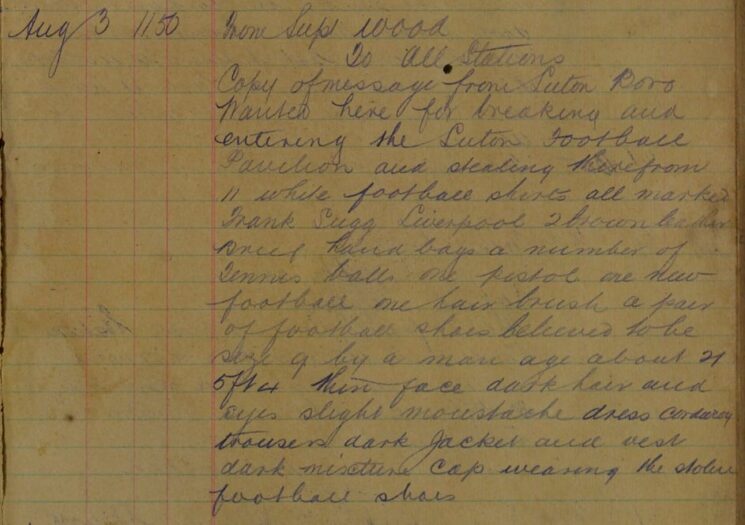 Aug 3 1150 From Supt Wood
To All Stations
Copy of message from Luton Boro
Wanted here for breaking and
entering the Luton Football
Pavilion and stealing therefrom
11 white football shirts all marked
Frank Sugg Liverpool 2 brown leather
hand bags a number of
Tennis balls one pistol one new
football one hair brush a pair
of football shoes believed to be
size 9 by a man age about 21
5ft 4 thin face dark hair and
eyes slight moustache dress corduroy
trousers dark Jacket and vest
dark mixture cap wearing the stolen
football shoes